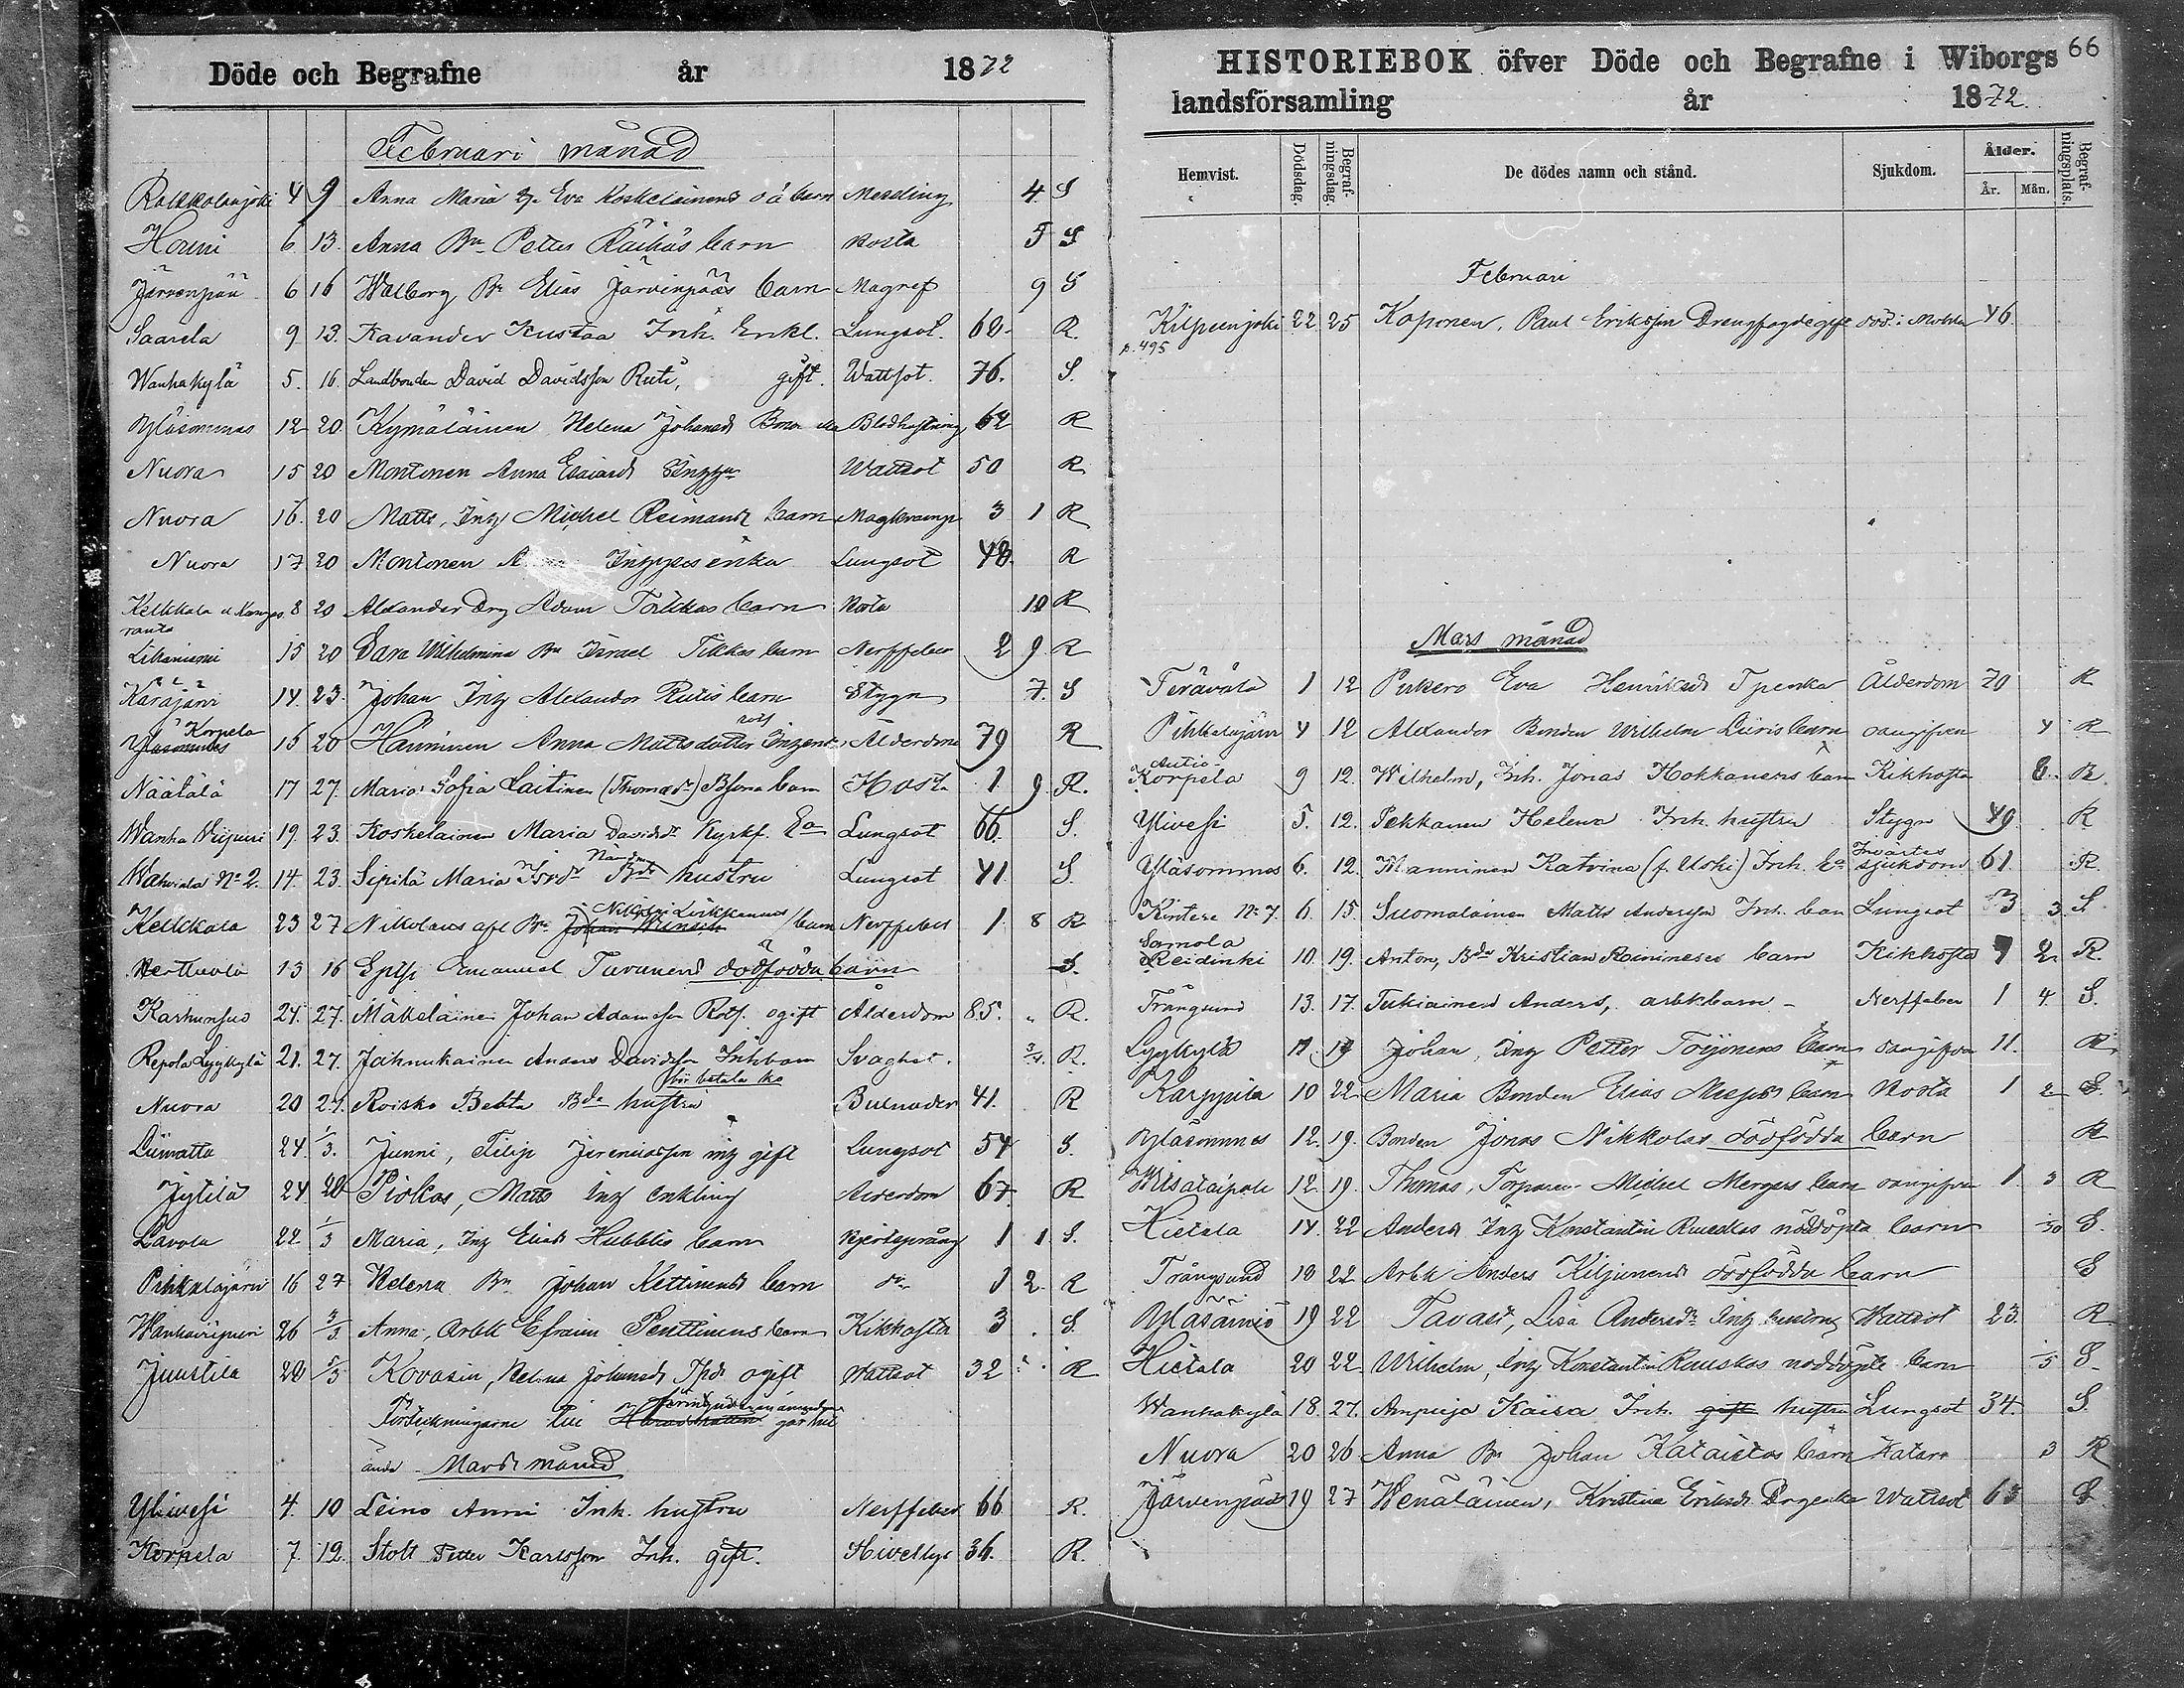 Döde och Begrafne år 1872
Februari månad
Rakkolanjoki 4 9 Anna Maria Eva Koskelainens oä barn Messling 4. S
Houni 6 13. Anna Bn Petter Räihäs barn Rosta 5 S
Järvenpää 6 16 Walborg Bn Elias Järvinpääs barn Magref 9 S
Saarela 9 13. Kavander Kustaa Inh. Enkl. Lungsot. 60. R.
Wanhakylä 5. 16. Landbonden David Davidsson Ruti, gift. Wattsot. 76. S.
Yläsommas 12 20 Kymäläinen Helena Johansdr Blodhostning 62 R
Nuora 15 20 Montonen Anna Esaiasdr Wattsot 50 R
Nuora 16. 20 Matts, Inh Michel Reimans barn Magkramp 3 1 R
Nuora 17 20 Montonen Inhyses enka Lungsot 48. R
Kelkkala 8 20 Alexander Drg Adam Tolkkas barn Rosta 10 R
ranta
Lihaniemi 15 20 Sara Wilhelmina Bn Israel Tikkas barn Nerffeber 2 9 R
Karäjärvi 14. 23. Johan Inh Alexander Rutis barn Stygn 7. S
Korpela
Yläsommas 16 20 Hänninen Anna Mattsdotter Ålderdom 79 R
Näätälä 17 27. Maria Sofia Laitinen (Thomasdr) barn Hosta 1 9. R.
Wanha Wiipuri 19. 23. Koskelainen Maria Davidsdr Kyrkf. Ea Lungsot 66. S.
Wahviala No 2. 14. 23. Sipilä Maria hustru Lungsot 41. S.
Kelkkala 23 27 Nikolaus afl Bn barn Nerffeber 1. 8 R
13 16 Emanuel Tavanens dödfödda barn S.
Karhunsuo 24. 27. Mäkeläinen Johan Adamsson ogift Ålderdom 85. " R.
Repola Lyykylä 21. 27. Jahnukainen Anders Davidsson Inh barn Svaghet. 3/4. R.
bör betala ko
Nuora 20 27. Roisko Beata Bde hustru 41. R
Liimatta 24 1/3. Junni, Filip inh gift Lungsot 54 S.
Jytilä 24 20 Piokas, Matts Inh enkling Ålderdom 67 R
Lavola 22 1/3 Maria, Inh Elias Hubblis barn 1 1 S.
Pihkalajärvi 16 27 Helena Bn Johan Kettinens barn do 1 2. R
Wanhaviipuri 26 3/3 Anna, Arbk Efraim Penttinens barn Kikhosta 3 S.
Juustila 20 5/3 Kovasin, Helena Johansdr ogift Wattsot 32 R
Förteckningarne till
Mars månad
Ylivesi 4. 10 Leino Anni Inh. hustru Nerffeber 66 R.
Korpela 7. 12. Stolt Petter Karlsson Inh. gift. 36. R.
HISTORIEBOK öfver Döde och Begrafne i Wiborgs 66
landsförsamling år 1872
Hemvist. Dödsdag. Begrafningsdag. De dödes namn och stånd. Sjukdom. Ålder. År. Mån. Begrafningsplats.
Februari
Kilpeenjoki 22 25 Koponen, Paul Eriksson Drengfogde gift död i Mohla 46
p. 495
Mars månad
Terävälä 1 12 Pukero Eva Henriksdr Ålderdom 70 R
Pihkalajärvi 4 12 Alexander Bonden Wilhelm Liiris barn oangifven 4 R
Autio-
Korpela 9 12. Wilhelm, Inh. Jonas Hokkanens barn Kikhosta 6. R.
Ylivesi 5. 12. Pekkanen Helena Inh. hustru Stygn 49. R
Yläsommas 6. 12. Manninen Katrina (f. Uski) Inh. Ea Invärtes sjukdom 61. R.
Kintere No 7. 6. 15. Suomalainen Matts Andersson Inh. barn Lungsot 3 3. S.
Samola
10. 19. Anton, Bde Kristian barn Kikhosta 7 2. R.
Trångsund 13. 17. Tukiainen Anders, arbkbarn Nerffeber 1 4. S.
Lyykylä 11. 19 Johan, Inh Petter Toijonens barn oangifven 11. R
Karppila 10 22 Maria Bonden Elias barn Rosta 1 2 S.
Yläsommes 12. 19. Bonden Jonas Nikkolas dödfödda barn R
12. 19. Thomas, Torparen Michel barn oangifven 1. 3 R
Hietala 14. 22 Anders Inh Konstantin Ruuskas nöddöpta barn 1/30 S.
Trångsund 10 22 Arbk Anders Kiljunens dödfödda barn S
19 22 Tavast, Lisa Andersdr Inh hustru Wattsot 23. R
Hietala 20 22. Wilhelm, Inh Konstantin Ruuskas nöddöpte barn S.
Wanhakylä 18. 27. Ampuja Kaisa Inh. gift hustru Lungsot 34. S.
Nuora 20 26 Anna Bn Johan Kataistos barn Katarr 3 R
Järvenpää 19 27 Wenäläinen, Kristina Eriksdr Wattsot 63 S